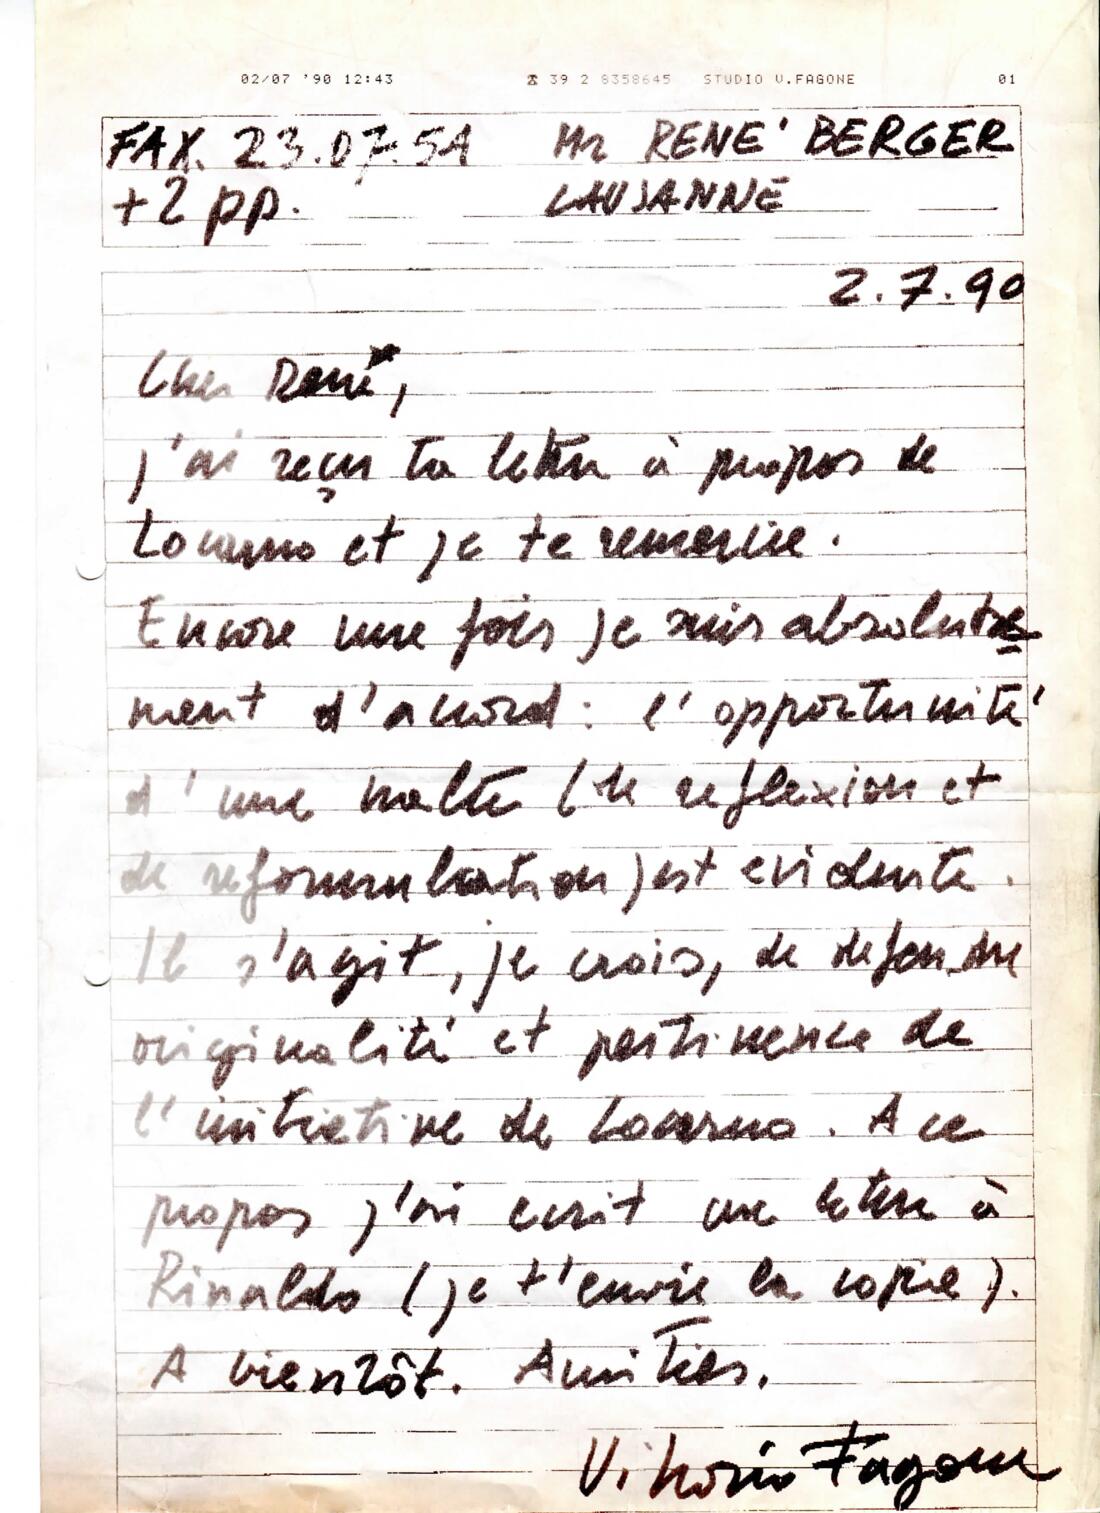 02/07 '90 12:43 ☎ 39 2 8358645 STUDIO V.FAGONE 01
FAX. 23.07.54 Mr RENE' BERGER
+2 pp. LAUSANNE
2.7.90
Cher René,
j'ai reçu ta lettre à propos de
Locarno et je te remercie.
Encore une fois je suis absolute
ment d'accord : l'opportunité
d'une halte (de reflexion et
de reformulation) est evidente.
Il s'agit, je crois, de defendre
originalité et pertinence de
l'initiative de Locarno. A ce
propos j'ai ecrit une lettre à
Rinaldo (je t'envie la copie).
A bientôt. Amitiés.
Vittorio Fagone